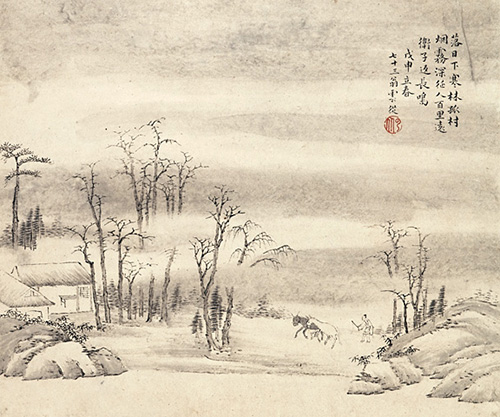 落日下寒林孤村
烟霧深征人百里遠
衛子逆長鳴
戊申立春
七十三翁雲從